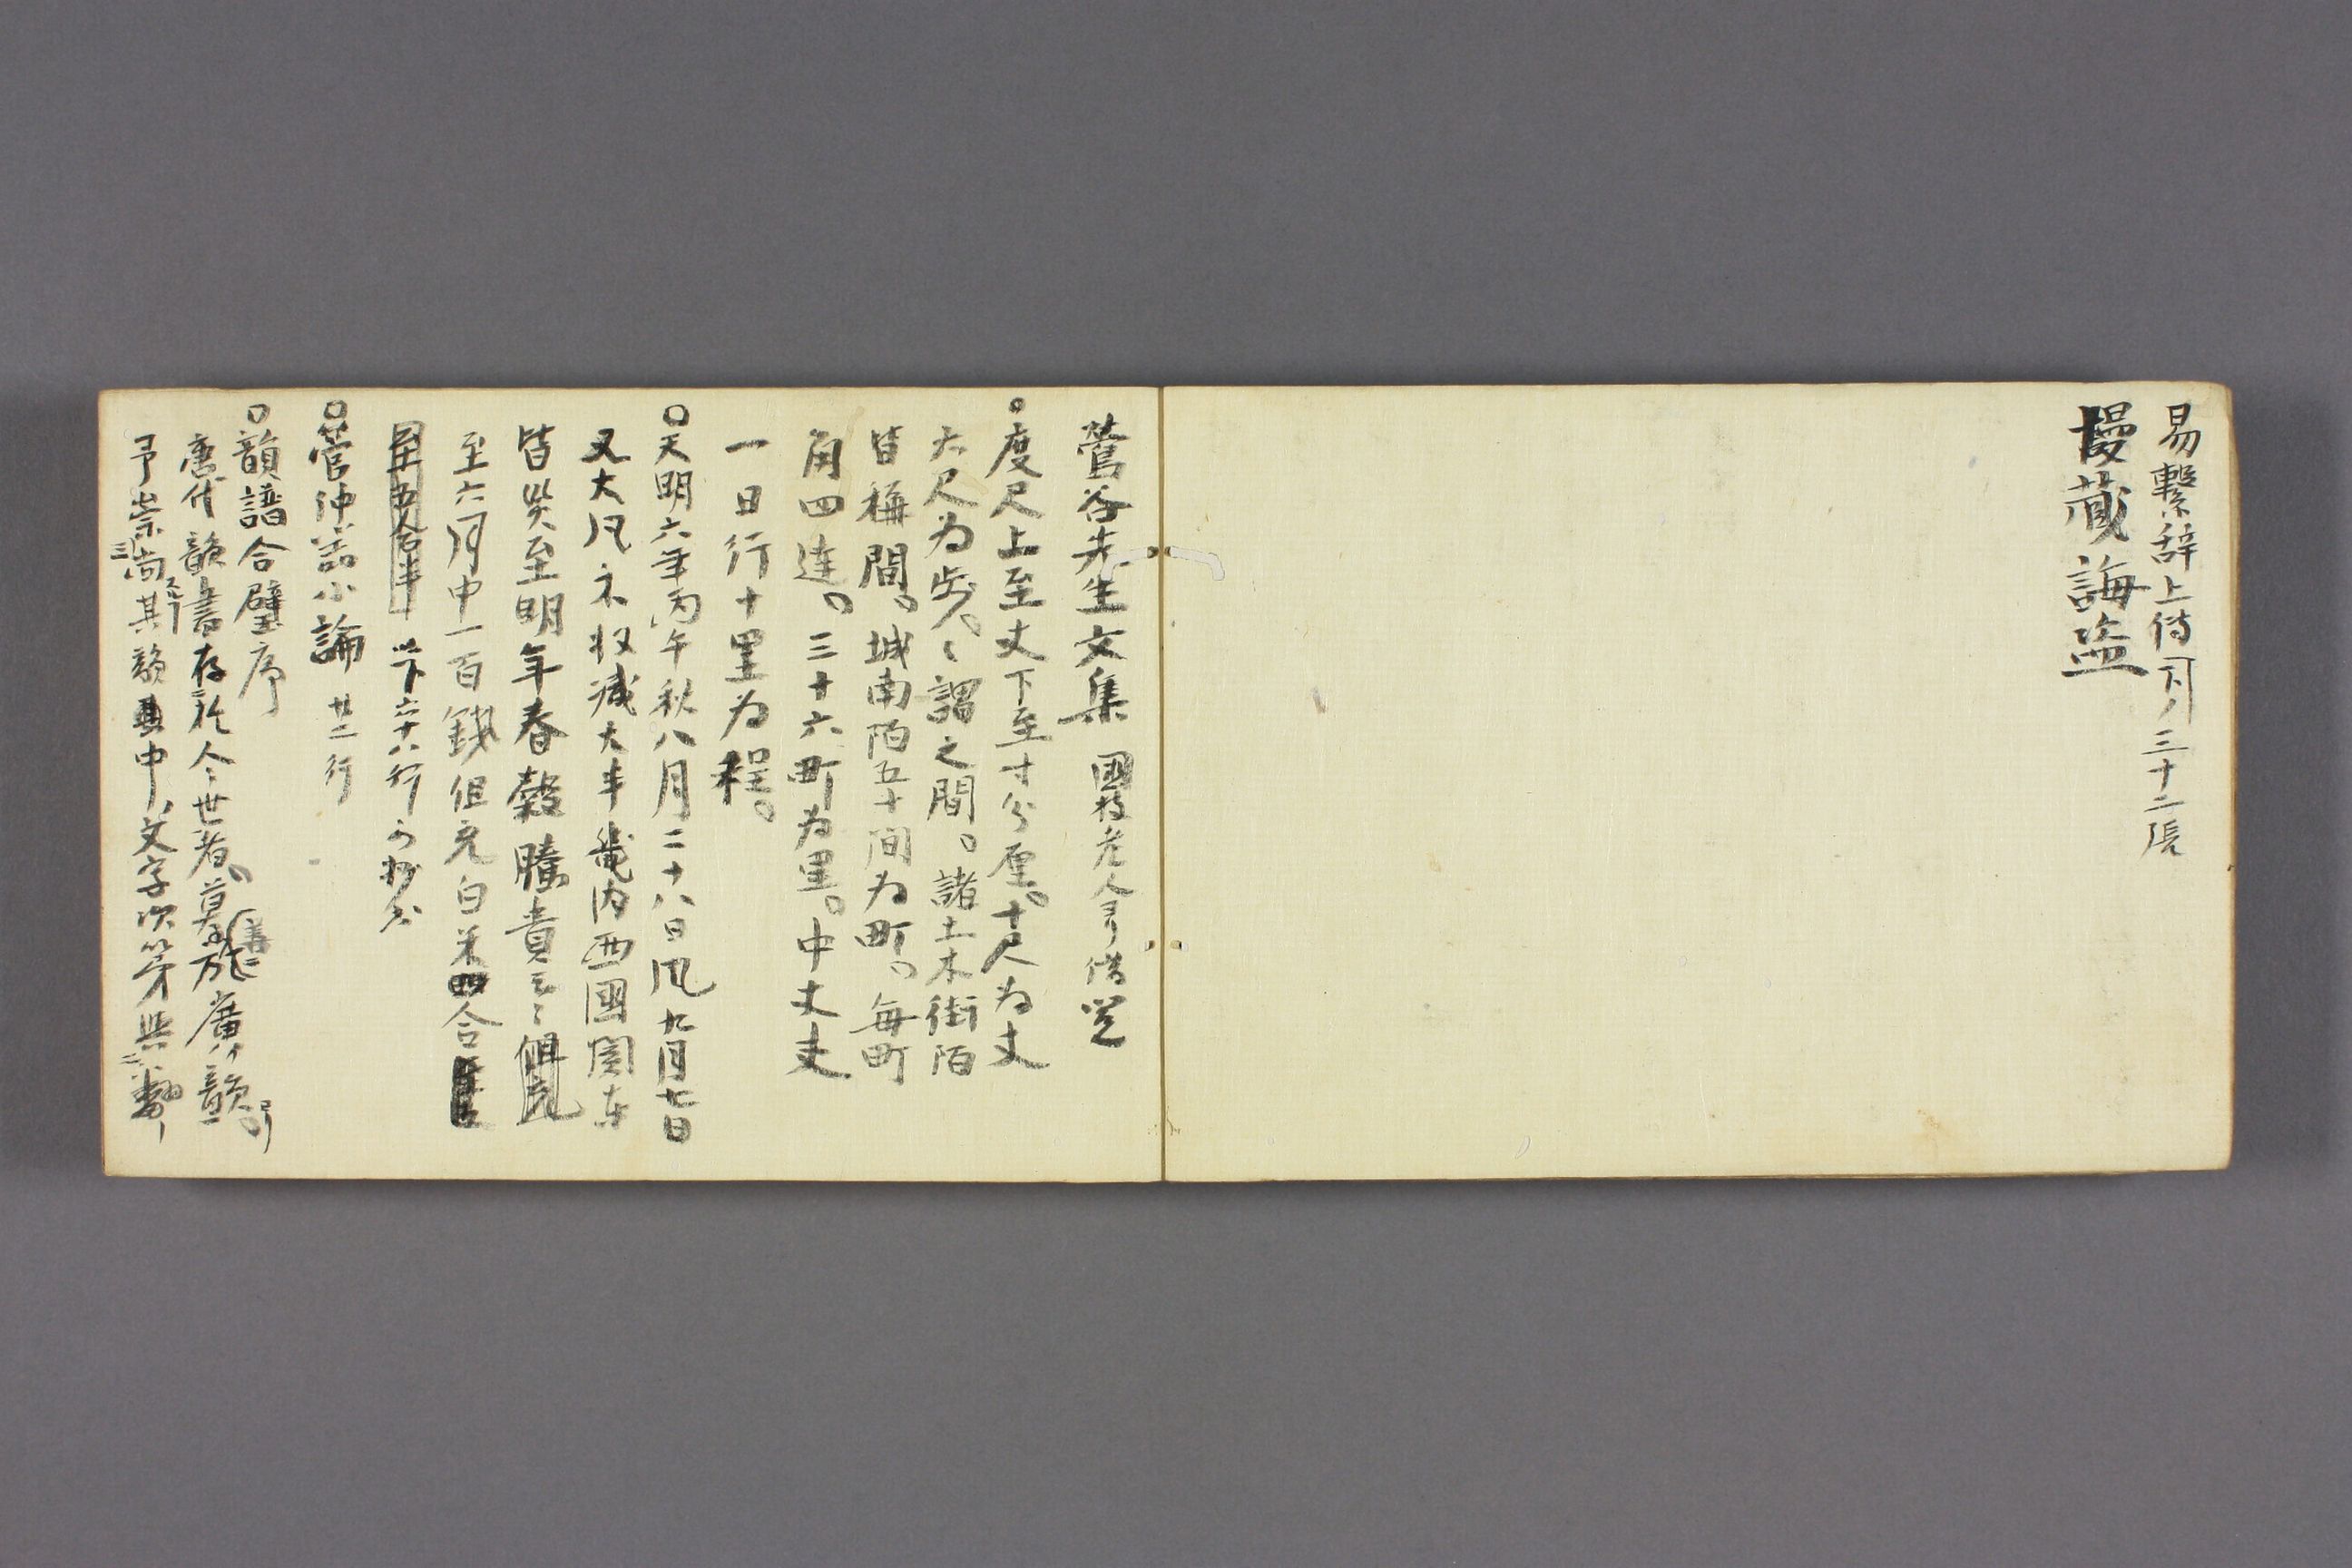 易繋辞上傳 三十二張
慢藏誨盗
鶯谷先生文集 國枝老人ヨリ借覧
○度尺上至丈下至寸分厘。十尺為丈
六尺為歩。々謂之間。諸土木街陌
皆稱間。城南陌五十間為町。毎町
角四達。三十六町為里。中丈夫
一日行十里為程。
○天明六年丙午秋八月二十八日風九月七日
又大風禾收減大半畿内西國関东
皆災至明年春穀騰貴云々
至六月中一百錢但充白米四合
至五合半 以下六十八行可抄出
○管仲論小論 廿二行
○韻譜合璧序
唐代韻書存於今世者。莫善於廣韻。
予崇尚其韻中文字次第